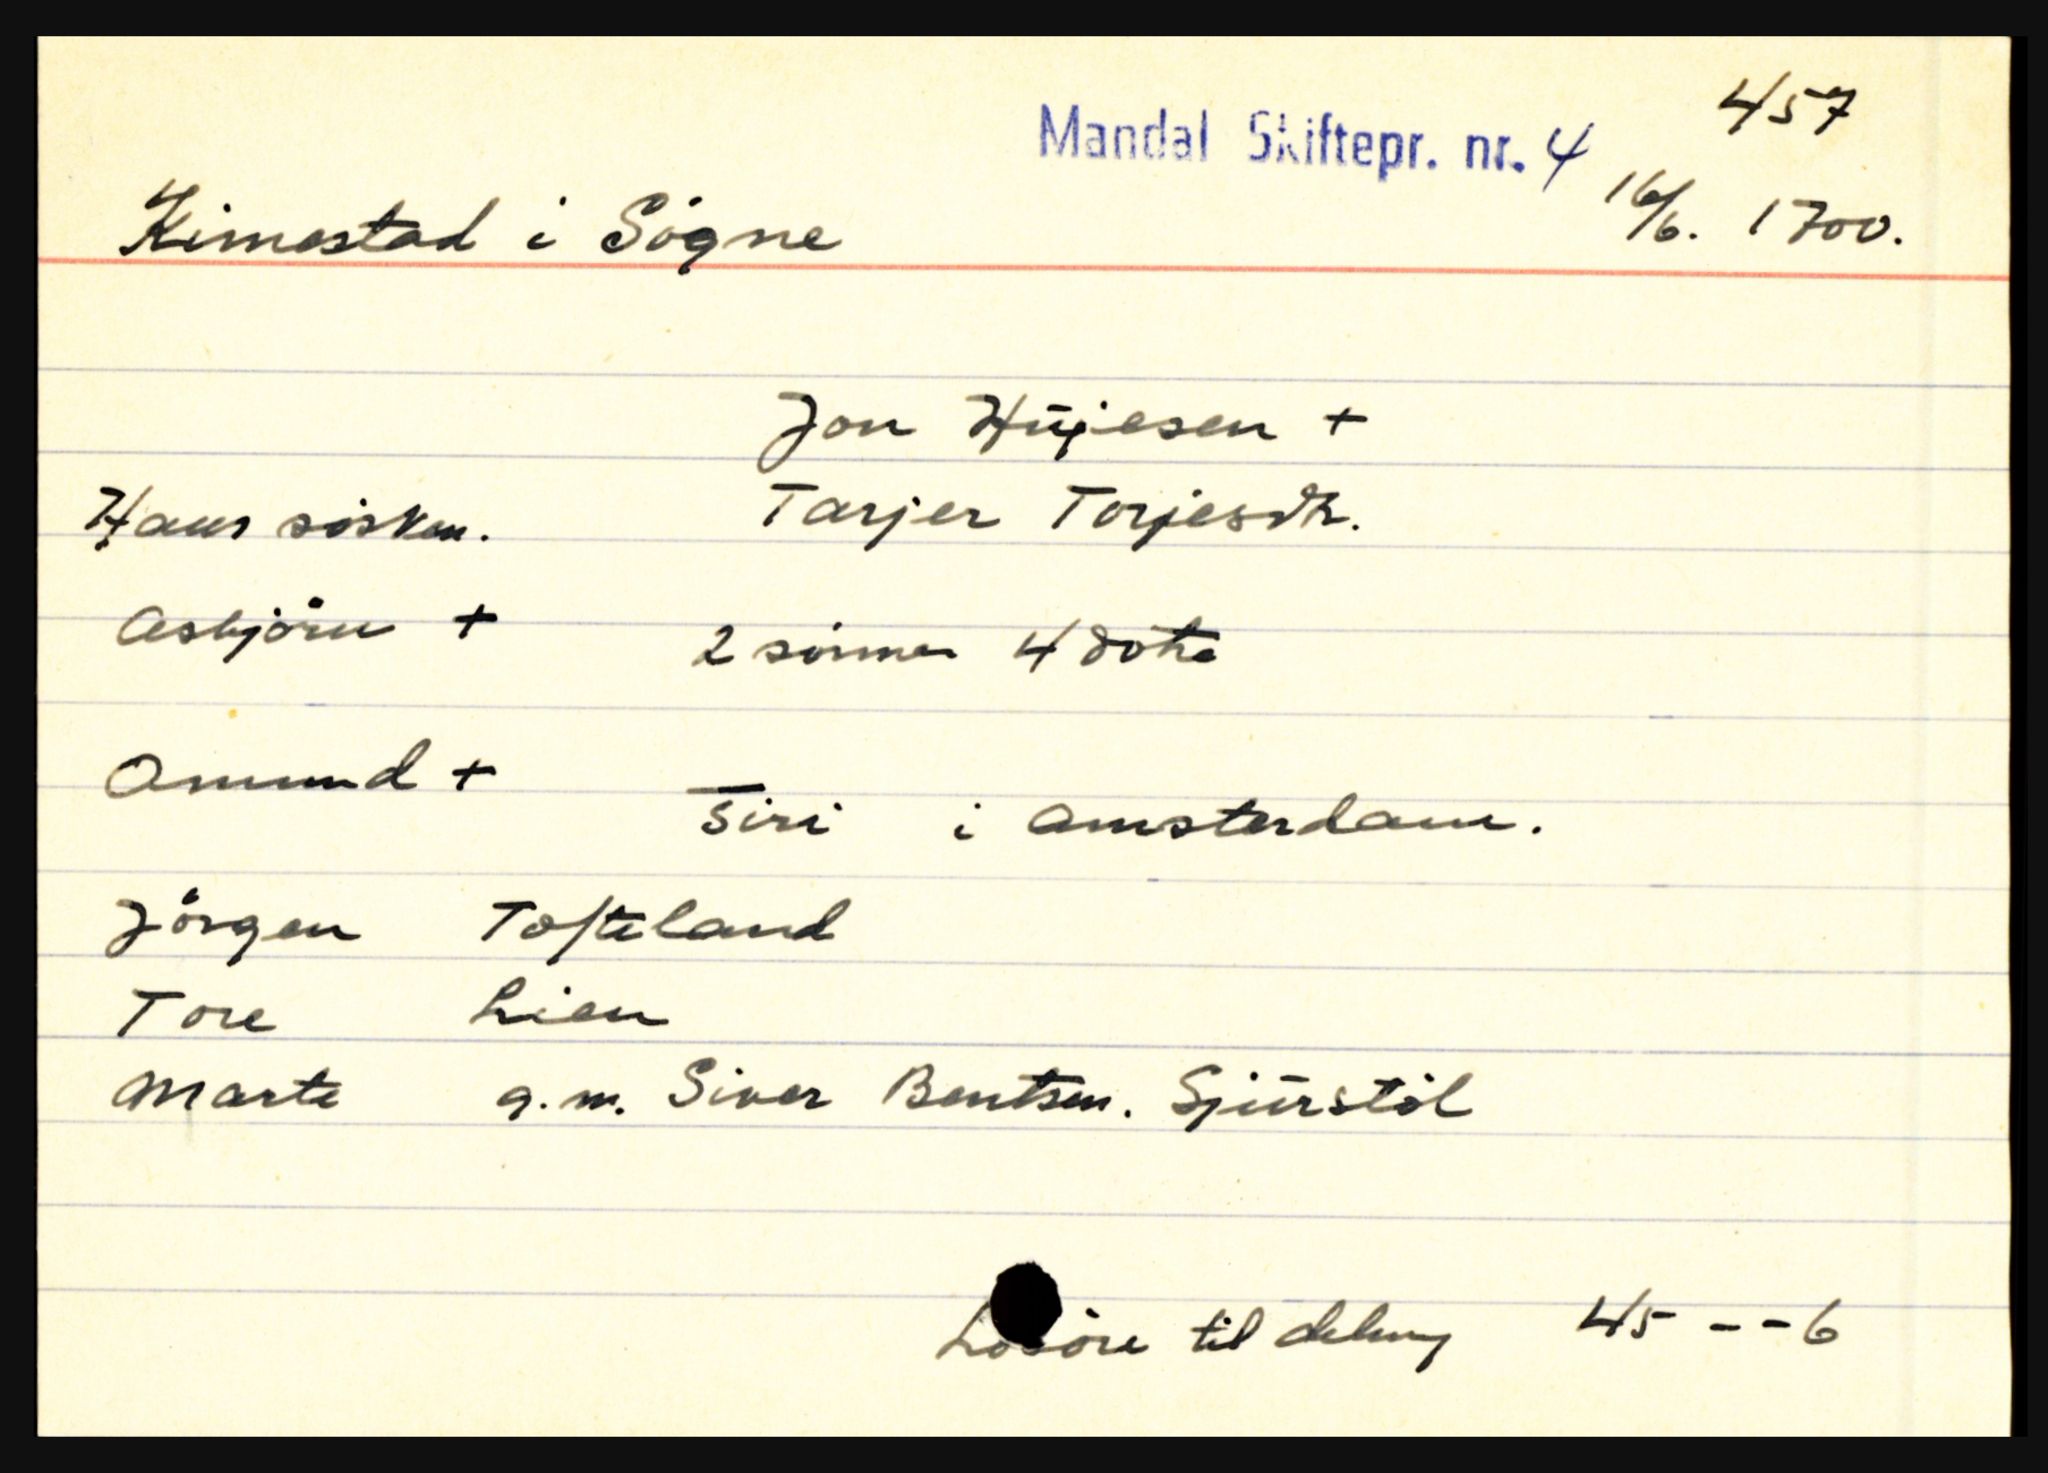 457
Mandal Skiftepr. nr. 4
16/6. 1700.
Kimestad i Søgne
Jon Hüjesen +
Hans søsken.
Tarjer Torjesdtr.
Asbjørn +
2 sønner 4 døtre
Omund +
Siri i Amsterdam.
Jörgen Tofteland
Tore Lien
Marte g.m. Siver Bentsen. Sjürstöl
Losöre til deling 45 - - 6